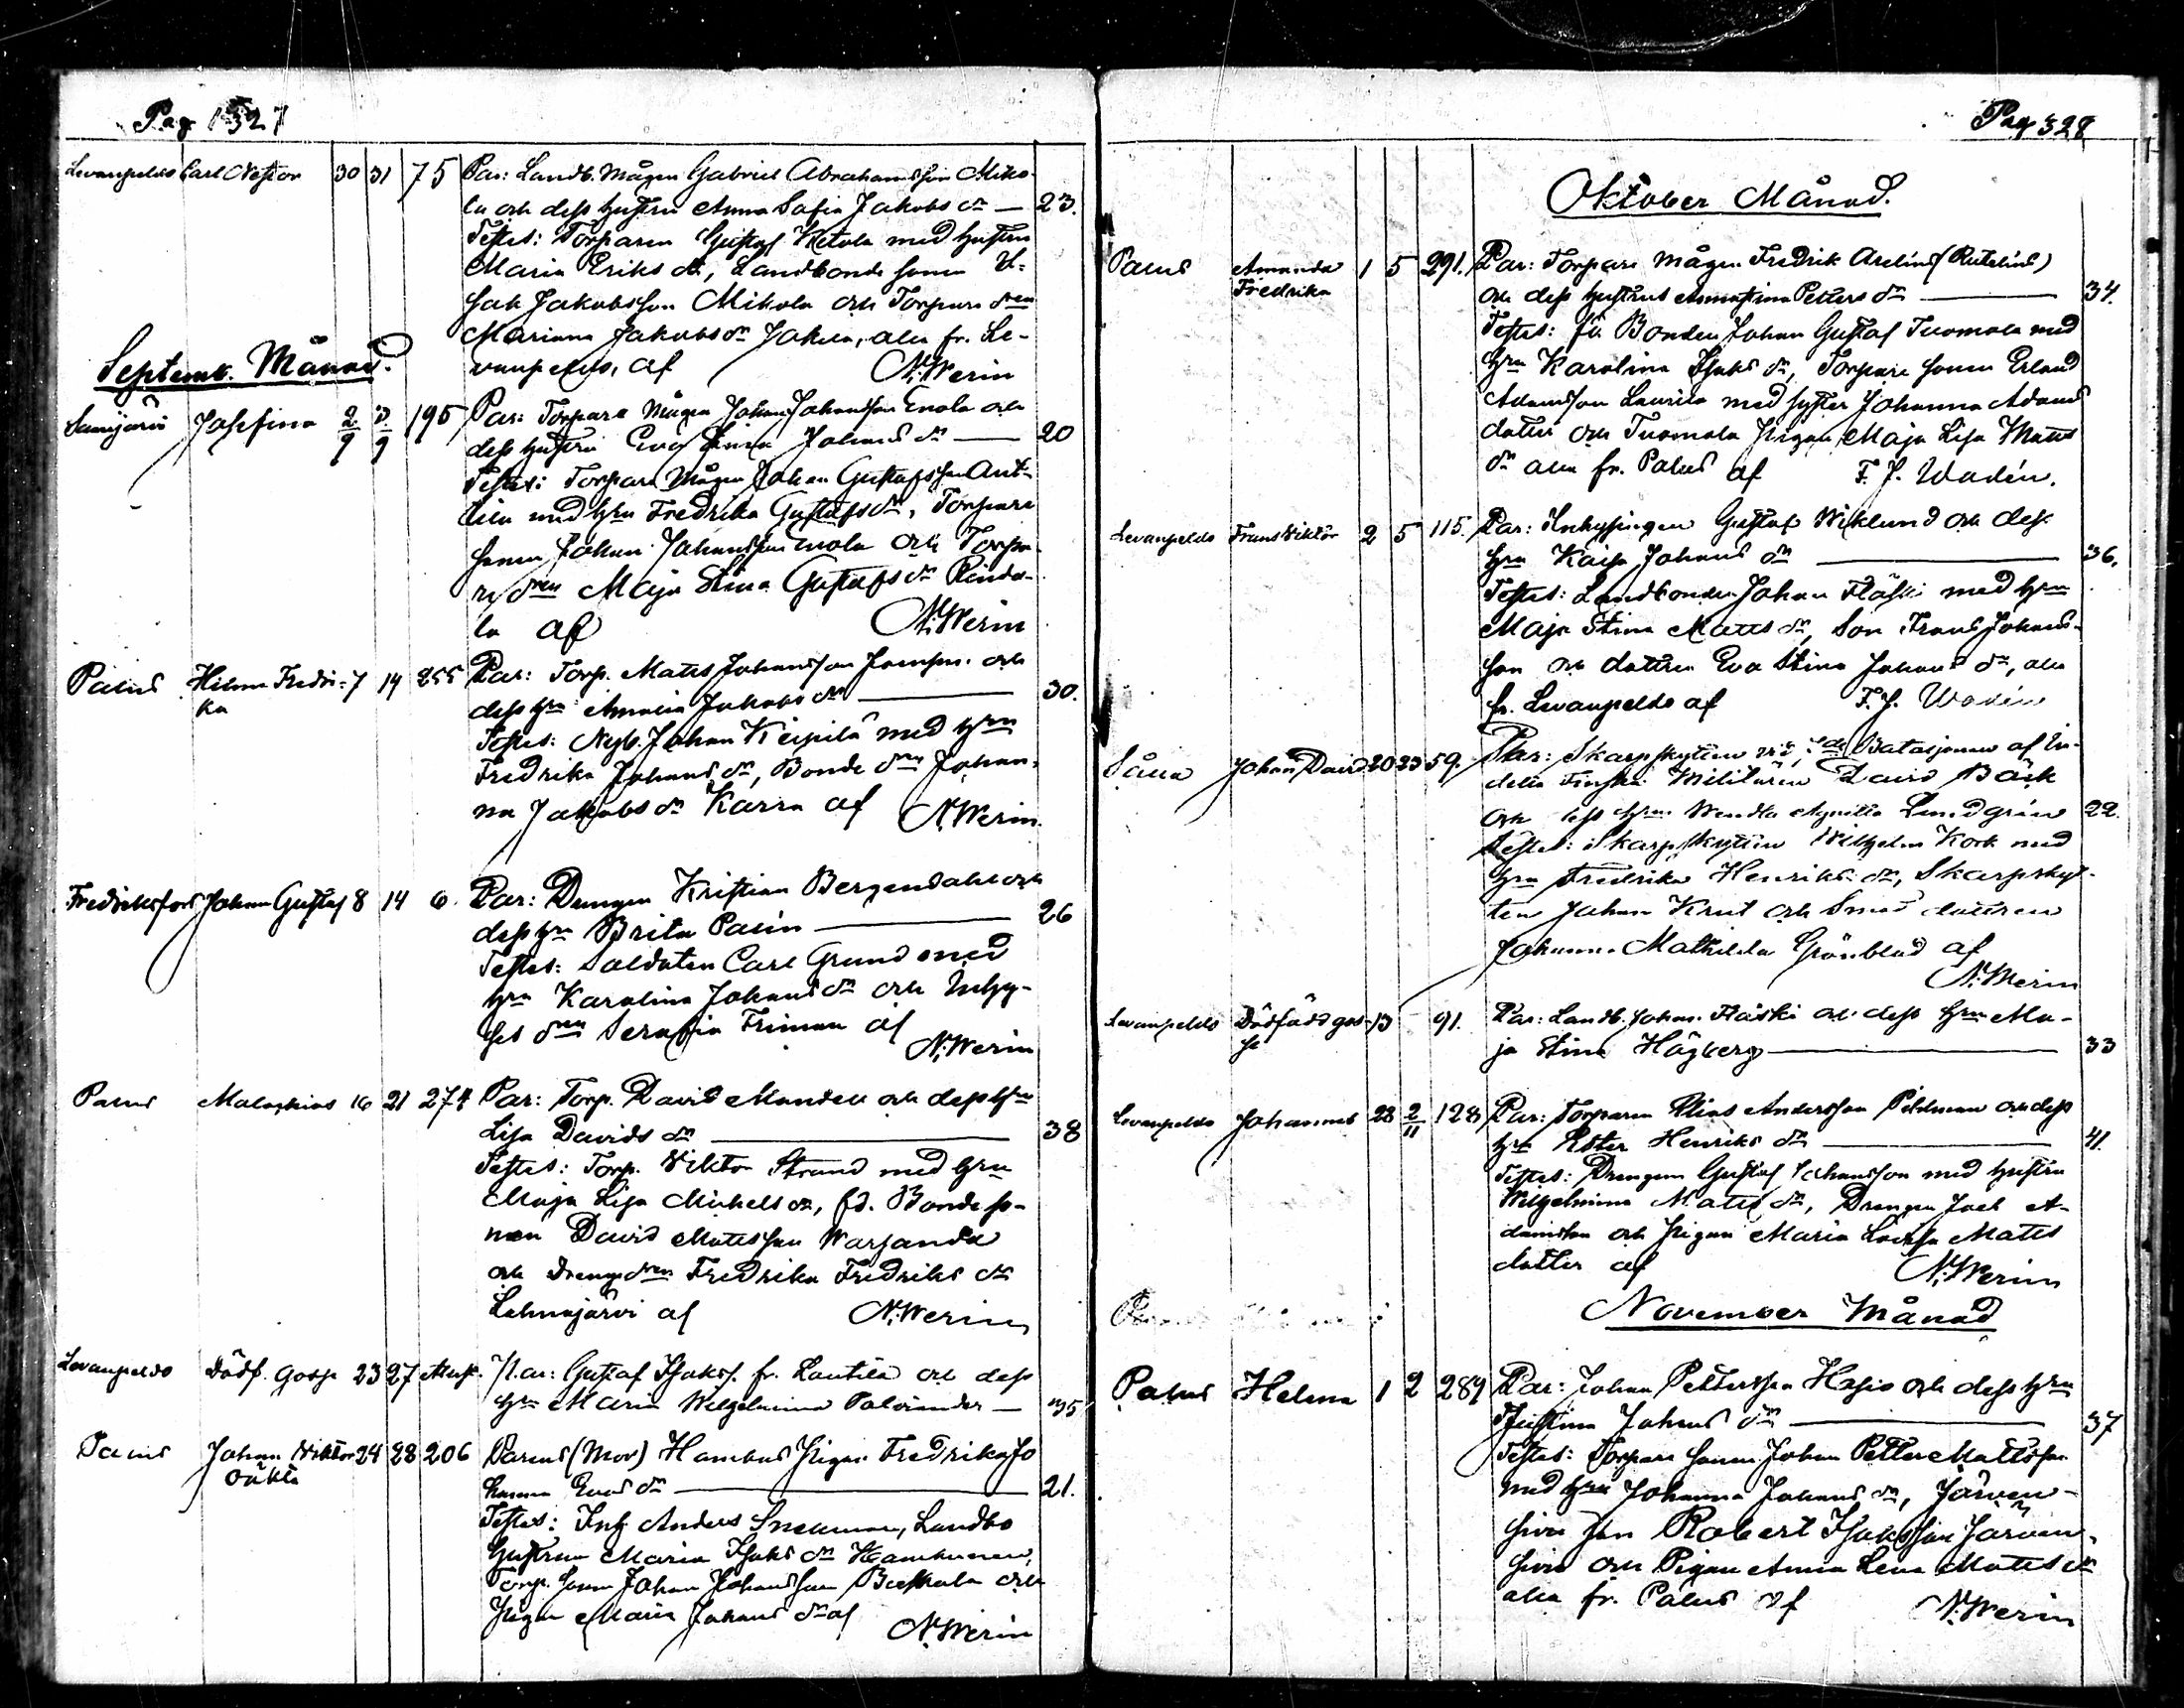 Pag 1327
Levanpelds Carl Nestor 30 31 75 Par: Landb. Mågen Gabriel Abrahamsson Miko-
la och dess hustru Anna Sofia Jakobs dr — 23.
Testes: Torparen Gustaf Ketola med hustru
Maria Eriks dr, Landbonde sonen I-
sak Jakobsson Mikola och Torpare dren
Mariana Jakobs dr Jakola, alla fr. Le-
vanpelds, af N. Werin
Septemb. Månad.
Samijärvi Josefina 2/9 3/9 195 Par: Torpare Mågen Johan Johansson Enola och
dess hustru Eva Stina Johans dr — 20
Testes: Torpare Mågen Johan Gustafsson Ant-
tila med hru Fredrika Gustafs dr, Torpare
sonen Johan Johansson Enola och Torpa-
re dren Maja Stina Gustafs dr Rinda-
la af N. Werin
Palus Hilma Fredri- 7 14 255 Par: Torp. Matts Johansson och
ka
dess hru Amalia Jakobs dr — 30.
Testes: Nyb. Johan Keipilä med hru
Fredrika Johans dr, Bonde dren Johan-
na Jakobs dr Karra af N. Werin.
Fredriksfors Johan Gustaf 8 14 6. Par: Drengen Kristian Bergendahl och
dess hru Brita Palin — 26
Testes: Soldaten Carl Grund med
hru Karolina Johans dr och Inhy-
ses dren Serafia Friman af
N. Werin
Palus Malakias 16 21 274 Par: Torp. David Mandell och dess hru
Lisa Davids dr — 38
Testes: Torp. Viktor Strand med hru
Maja Lisa Mickels dr, fd. Bonde so-
nen David Mattsson Warjanda
och Drenge dren Fredrika Fredriks dr
Lehmajärvi af N. Werin
Levanpelds Dödf. Gosse 23 27 Par: Gustaf Isakss. fr. Lautila och dess
hru Maria Wilhelmina Palviander — 35
Palus Johan Viktor 24 28 206 Parens (Mor) Hambus Pigan Fredrika Jo
oäkta
hanna Enos dr — 21.
Testes: Inh. Anders Snellman, Landbo
hustrun Maria Isaks dr Hamhunen,
Torp. sonen Johan Johansson och
Pigan Maria Johans dr af N. Werin
Pag 328
Oktober Månad.
Palus Amanda 1 5 291. Par: Torpare Mågen Fredrik Arelius (Rutelius)
Fredrika
och dess hustru Annastina Petters dr — 34.
Testes: fd Bonden Johan Gustaf Tuomola med
hru Karolina Isaks dr, Torpare sonen Erland
Adamsson Laurila med syster Johanna Adams
dotter och Tuomola Pigan Maja Lisa Matts
dr alla fr. Palus af F. J. Wadén.
Levanpelds Frans Viktor 2 5 115. Par: Inhysingen Gustaf Wiklund och dess
hru Kaisa Johans dr — 36.
Testes: Landbonden Johan Fläski med hru
Maja Stina Matts dr, Son Frans Johans-
son och dottren Eva Stina Johans dr, alla
fr. Levanpelds af F. J. Wadén
Såua Johan David 20 23 59. Par: Skarpskytten vid Bataljonen af In-
delta Finska Militären David Bäck
och dess hru Wendla Lundgrén 22.
Testes: Skarpskytten Wilhelm Kock med
hru Fredrika Henriks dr, Skarpskyt-
ten Johan Krut och Smed dottren
Johanna Mathilda Grönblad af
N. Werin
Levanpelds Dödfödd gos- 13 91. Par: Landb. Johan Fläski och dess hru Ma-
se
ja Stina Högberg — 33
Levanpelds Johannes 28 2/11 128 Par: Torparen Elias Andersson Pihlman och dess
hru Ester Henriks dr — 41.
Testes: Drengen Gustaf Johansson med hustru
Wilhelmina Matts dr, Drengen Joel A-
damsson och Pigan Maria Lovisa Matts
dotter af N. Werin
November Månad
Palus Helena 1 2 289 Par: Johan Pettersson Hasio och dess hru
Justina Johans dr — 37
Testes: Torpare sonen Johan Petter Mattsson
med hru Johanna Johans dr, Järven-
sivu son Robert Isaksson Järven-
sivu och Pigan Anna Lena Matts dr
alla fr. Palus af N. Werin